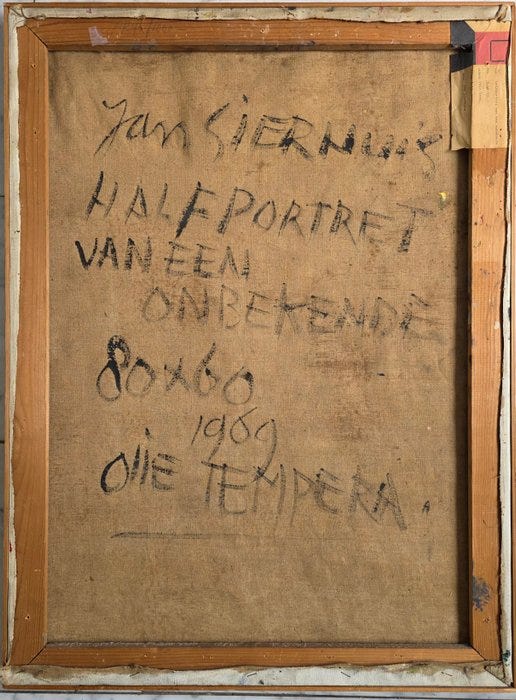 Jan SiERHUis
HALFPORTRET
VAN EEN
ONBEKENDE
80x60
1969
OliE TEMPERA.